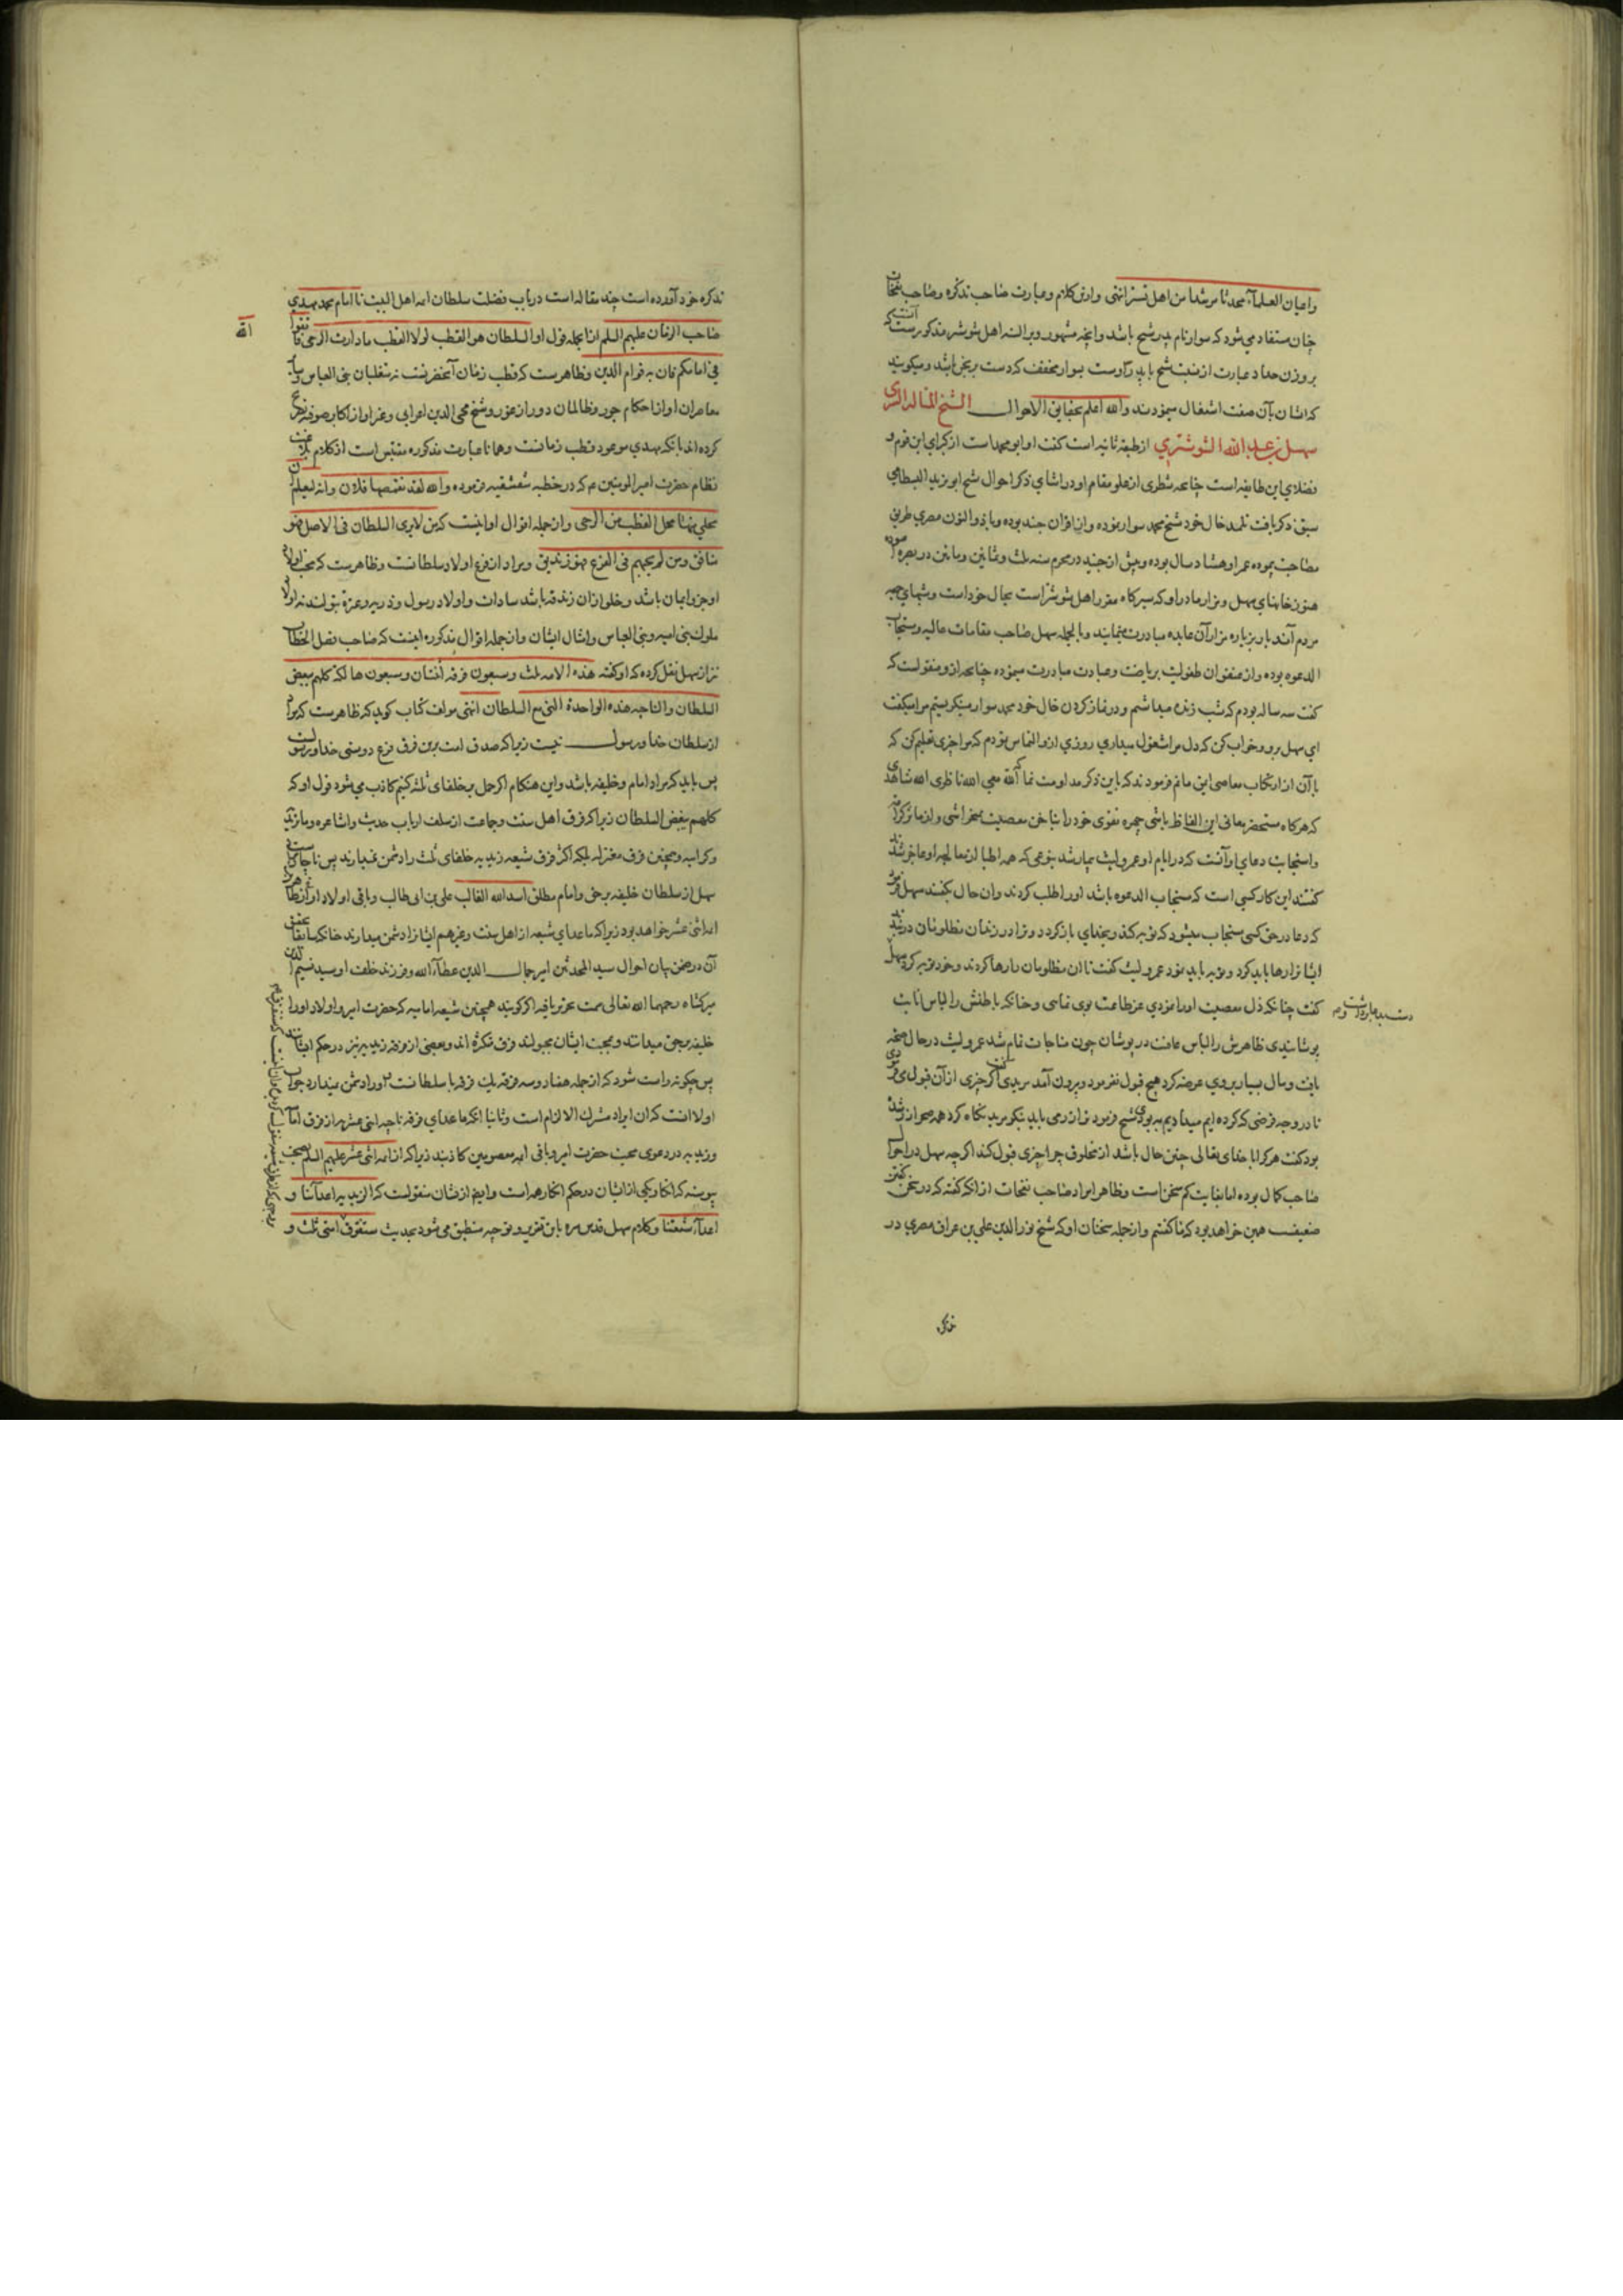 واعیان العلمآء محدثا مرشدا من اهل تستر انتهی وازین کلام وعبارت صاحب تذکره وصاحب نفحات
چنان مستفاد می شود که سوار نام پدر شیخ باشد وانچه مشهور وبر السنه اهل شوشتر مذکورست آنست که
بر وزن حداد عبارت از نسبت شیخ باید
که ایشان بآن صفت اشتغال مینمودند والله اعلم بحقایق الاحوال الشیخ المتاله
سهل بن عبدالله التوشتری از طبقه ثانیه است کنیت او ابو محمد است از کبرای این قوم و
فضلای این طایفه است چنانچه شطری از علو مقام او در اثنای ذکر احوال شیخ ابویزید البسطامی
سبق ذکر یافت تلمیذ خال خود شیخ محمد سوار بوده واز اقران جنید بوده وبا ذوالنون مصری طریق
مصاحبت پیموده عمر او هشتاد سال بوده وپیش از جنید در محرم سنه ثلث وثمانین ومایتین در بصره
هنوز خانهای سهل ومزار مادر او که سیرگاه مقرر اهل شوشتر است بحال خود است وشبهای جمعه
مردم آندیار بزیاره مزار آن عابده مبادرت مینمایند وبالجمله سهل صاحب مقامات عالیه ومستجاب
الدعوه بوده واز عنفوان طفولیت بریاضت وعبادت مبادرت مینموده چنانچه ازو منقولست که
گفت سه ساله بودم که شب زنده میداشتم ودر نماز کردن خال خود محمد سوار مینگریستم مرا میگفت
ای سهل برو وخواب کن که دل مرا مشغول میداری روزی ازو التماس نمودم که مرا چیزی تعلیم کن که
با آن از ارتکاب معاصی ایمن مانم فرمودند که باین ذکر مداومت نما که الله معی الله ناظری الله شاهدی
که هرگاه مستحضر معانی این الفاظ باشی چهره تقوی خود را بناخن معصیت نخراشی
واستجابت دعای او آنست که در ایام او عمرو لیث بیمار شد بنوعی که همه اطبا از معالجه او عاجز شدند
گفتند این کار کسی است که مستجاب الدعوه باشد او را طلب کردند وآن حال بگفتند سهل فرمود
که دعا در حق کسی مستجاب میشود که توبه کند وبخدای بازگردد وترا در زندان مظلومان دربند
ایشانرا رها باید کرد وتوبه باید نمود عمرو لیث گفت تا آن مظلومان را رها کردند وخود توبه کرد سهل
گفت چنانکه ذل معصیت او را نمودی عز طاعت بوی نمای وچنانکه باطنش را لباس انابت
پوشانیدی ظاهرش را لباس عافیت درپوشان چون مناجات تمام شد عمرو لیث در حال صحة
یافت ومال بسیار بروی عرضه کرد هیچ قبول نفرمود وبیرون آمد مریدی گفت اگر چیزی از آن قبول می فرمودی
تا در وجه قرضی که کرده ایم میدادیم به بودی شیخ فرمود ترا زر می باید بنگر مرید نگاه کرد همه صحرا زر شده
بود گفت هر که را با خدای تعالی چنین حال باشد از مخلوق چرا چیزی قبول کند اگرچه سهل در احوال
صاحب کمال بوده اما بغایت کم سخن است وظاهرا مراد صاحب نفحات از انکه گفته که در سخن گفتن
ضعیف همین خواهد بود که ما گفتیم واز جمله سخنان او که شیخ نورالدین علی بن عراق مصری در
تذکره خود آورده است چند مقاله است در باب فضیلت سلطان ائمه اهل البیت تا امام محمد مهدی
صاحب الزمان علیهم السلم از انجمله قول او السلطان هو القطب لولا القطب مادارت الرحی فاتقوا الله
فی امامکم فان به قوام الدین وظاهرست که قطب زمان آنحضرتست نه متغلبان بنی العباس وسایر
معاصران او از احکام جور وظالمان دور از غور وشیخ محی الدین اعرابی وغیر او از اکابر صوفیه
کرده اند بانکه مهدی موعود قطب زمانست وهمانا عبارت مذکوره مقتبس است از کلام بلاغت
نظام حضرت امیرالمومنین م که در خطبه شقشقیه فرموده والله لقد تقمصها فلان وانه لیعلم ان
محلی منها محل القطب من الرحی واز جمله اقوال او اینست که من لایری السلطان فی الاصل فهو
منافق ومن لم یحبهم فی الفرع فهو زندیق ومراد از فرع اولاد سلطانست وظاهرست که محب اولاد
او جزو ایمان باشد وخلو ازان زندقه باشد سادات واولاد رسول وذریه وعترة بتولند نه اولاد
ملوک بنی امیه وبنی العباس وامثال ایشان واز جمله اقوال مذکوره اینست که صاحب فصل الخطاب
نیز از سهل نقل کرده که او گفته هذه الامه ثلث وسبعون فرقه اثنتان وسبعون هالکه کلهم یبغض
السلطان والناجیه هذه الواحدة التی مع السلطان انتهی مولف کتاب گوید که ظاهرست که مراد
از سلطان خدا ورسول نیست زیرا که صدق امت برین فرق فرع دوستی خدا ورسولست
پس باید که مراد امام وخلیفه باشد واین هنگام اگر حمل بر خلفای ثلثه کنیم کاذب می شود قول او که
کلهم یبغض السلطان زیرا که فرق اهل سنت وجماعت از سلف ارباب حدیث واشاعره وماتریدیه
وکرامیه وهمچنین فرق معتزله بلکه اکثر فرق شیعه زیدیه خلفای ثلث را دشمن نمیدارند پس ناچار
سهل از سلطان خلیفه برحق وامام مطلق اسدالله الغالب علی بن ابی طالب وباقی اولاد او از ائمه اطهار
ائمه اثنی عشر خواهد بود زیرا که ماعدای شیعه از اهل سنت وغیرهم ایشانرا دشمن میدارند چنانکه سابقا تحقیق
آن در ضمن بیان احوال سید المحدثین امیر جمال الدین عطآءالله وفرزند خلف او سید نسیم الدین
میرکشاه رحمهما الله تعالی سمت تحریر یافته اگر گویند همچنین شیعه امامیه که حضرت امیر واولاد او را
خلیفه بحق میدانند وبمحبت ایشان مجبولند فرق متکثره اند وبعضی از فرقه زیدیه نیز در حکم ایشانند
پس چگونه راست شود که از جمله هفتاد وسه فرقه یک فرقه با سلطانست واو را دشمن نمیدارد جواب
اولا انست که ان ایراد مشترک الالزام است وثانیا انکه ماعدای فرقه ناجیه اثنی عشریه از فرق امامیه
وزیدیه در دعوی محبت حضرت امیر وباقی ائمه معصومین کاذبند زیرا که از ائمه اثنی عشر علیهم السلم بصحت
پیوسته که انکار یکی از ایشان در حکم انکار همه است وایضا ازیشان منقولست که الزیدیه اعدآئنا و
اعدآء شیعتنا وکلام سهل قدس سره باین تقریر وتوجیه منطبق می شود بحدیث ستفترق امتی ثلث و